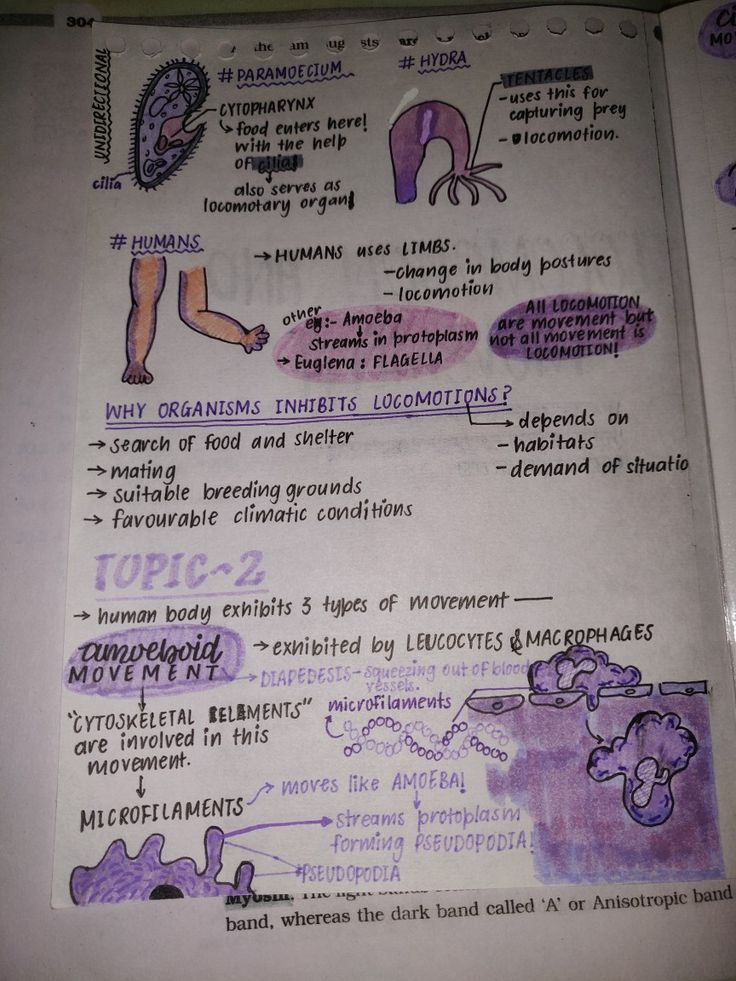 304
# PARAMOECIUM
# HYDRA
UNIDIRECTIONAL
CYTOPHARYNX
food enters here!
with the help
of cilia!
also serves as
locomotary organ!
cilia
TENTACLES
- uses this for
capturing prey
- locomotion.
# HUMANS
→ HUMANS uses LIMBS.
- change in body postures
- locomotion
other
eg:- Amoeba
streams in protoplasm
→ Euglena : FLAGELLA
All LOCOMOTION
are movement but
not all movement is
LOCOMOTION!
WHY ORGANISMS INHIBITS LOCOMOTIONS?
→ search of food and shelter
→ mating
→ suitable breeding grounds
→ favourable climatic conditions
depends on
- habitats
- demand of situatio
TOPIC~2
→ human body exhibits 3 types of movement —
amoeboid
MOVEMENT
→ exhibited by LEUCOCYTES & MACROPHAGES
→ DIAPEDESIS - squeezing out of blood
vessels.
"CYTOSKELETAL ELEMENTS"
are involved in this
movement.
microfilaments
MICROFILAMENTS
moves like AMOEBA!
streams protoplasm
forming PSEUDOPODIA!
PSEUDOPODIA
Myosin.
band, whereas the dark band called 'A' or Anisotropic band